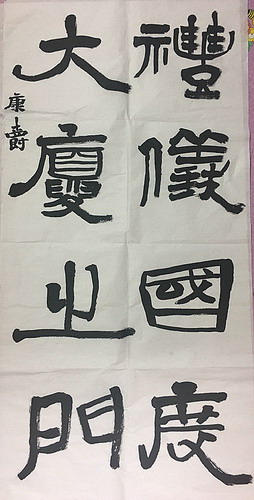 禮儀國度
大廈之門
康壽